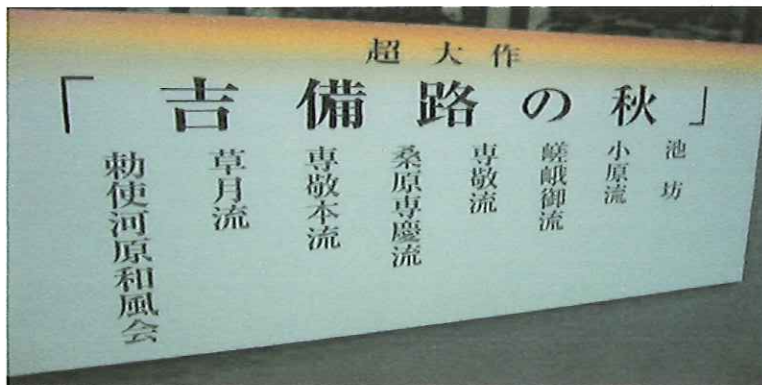 超大作
「吉備路の秋」
池坊
小原流
嵯峨御流
専敬流
桑原専慶流
専敬本流
草月流
勅使河原和風会